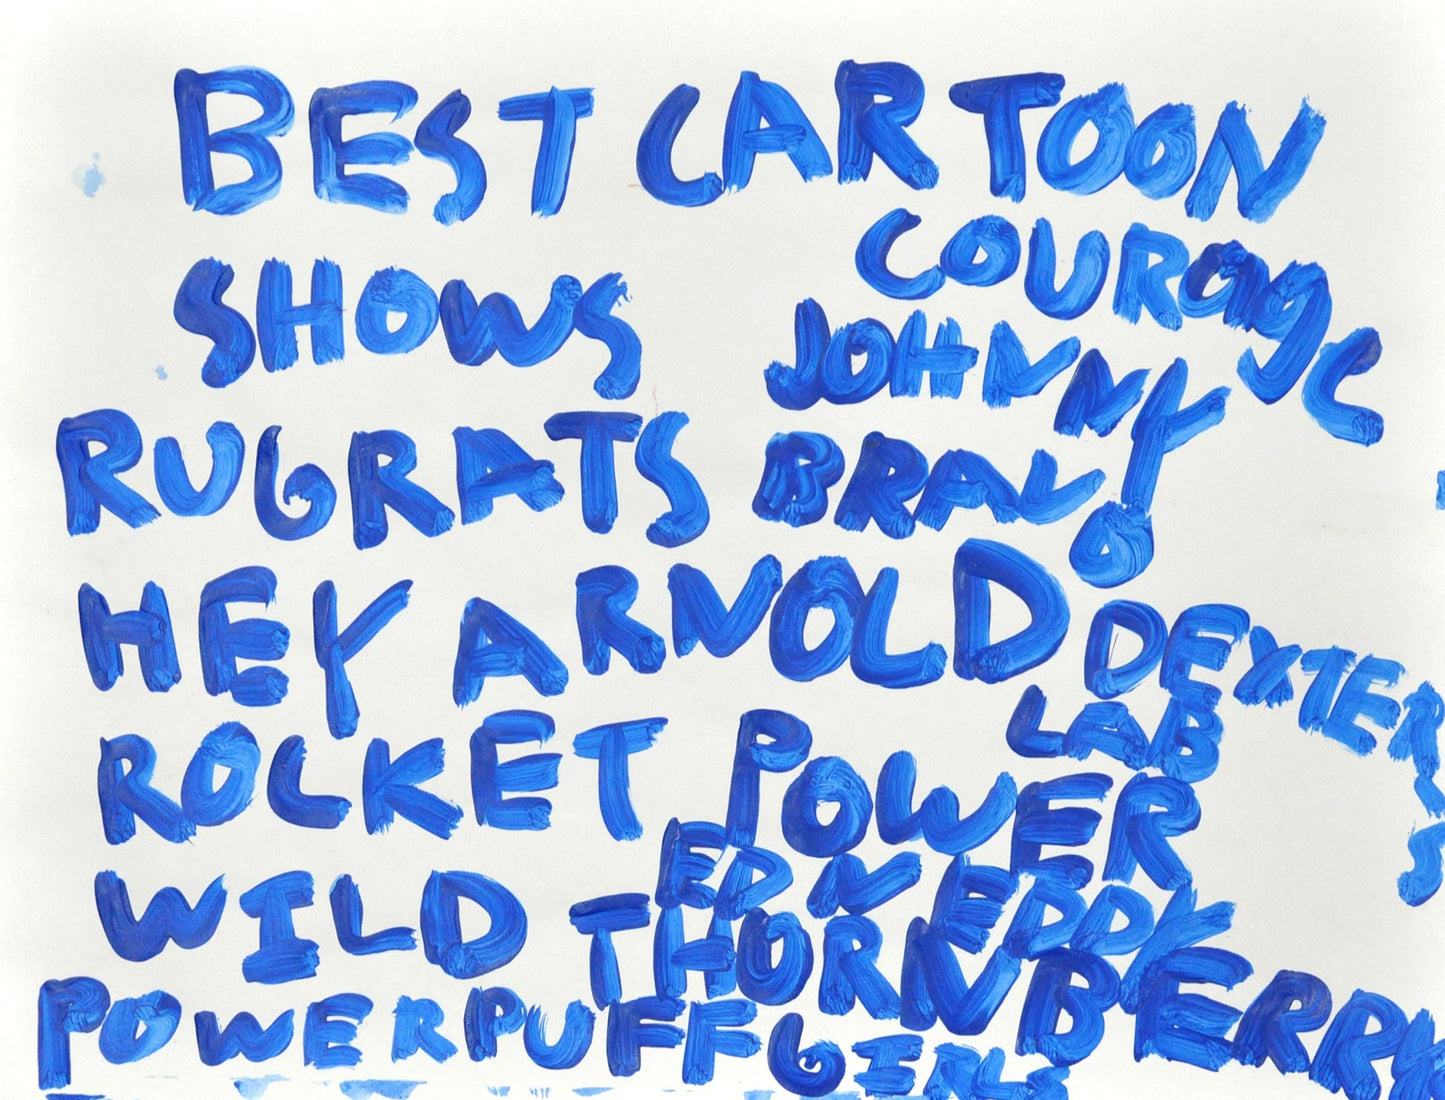 BEST CARTOON
SHOWS
COURAgE
JOHNNY
BRAVO
RUGRATS
HEY ARNOLD
DEXTERS
LAB
ROCKET POWER
ED N EDDY
WILD THORNBERRY
POWERPUFF GIRLS